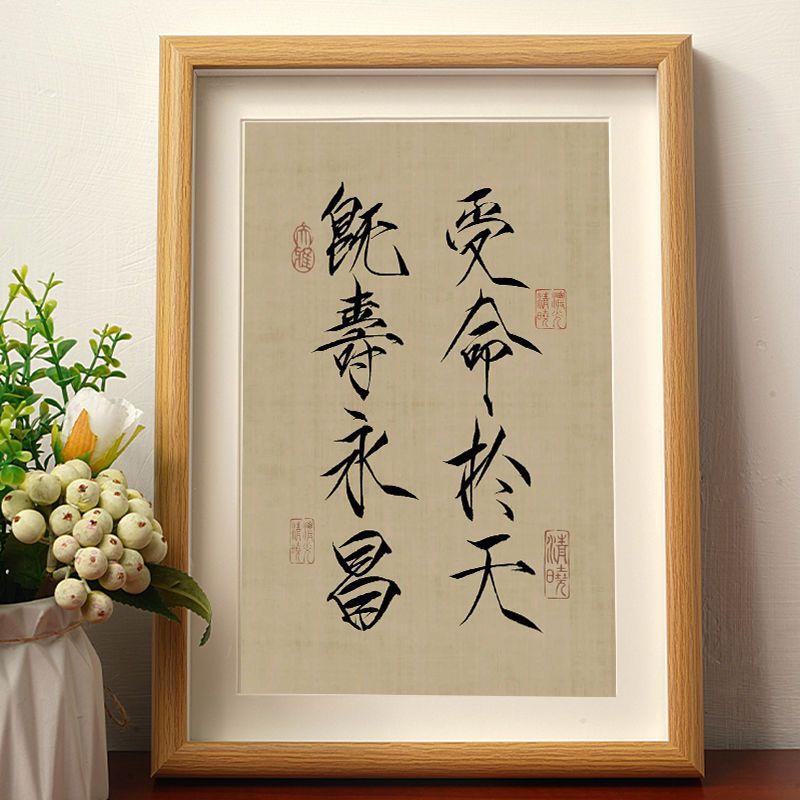 受命於天
既壽永昌
清曉